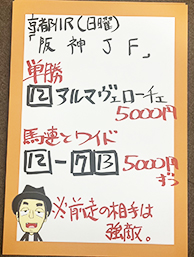 京都11R(日曜)
「阪神JF」
単勝
12 アルマヴェローチェ
5000円
馬連とワイド
12-7 13 5000円
ずつ
※前走の相手は
強敵。